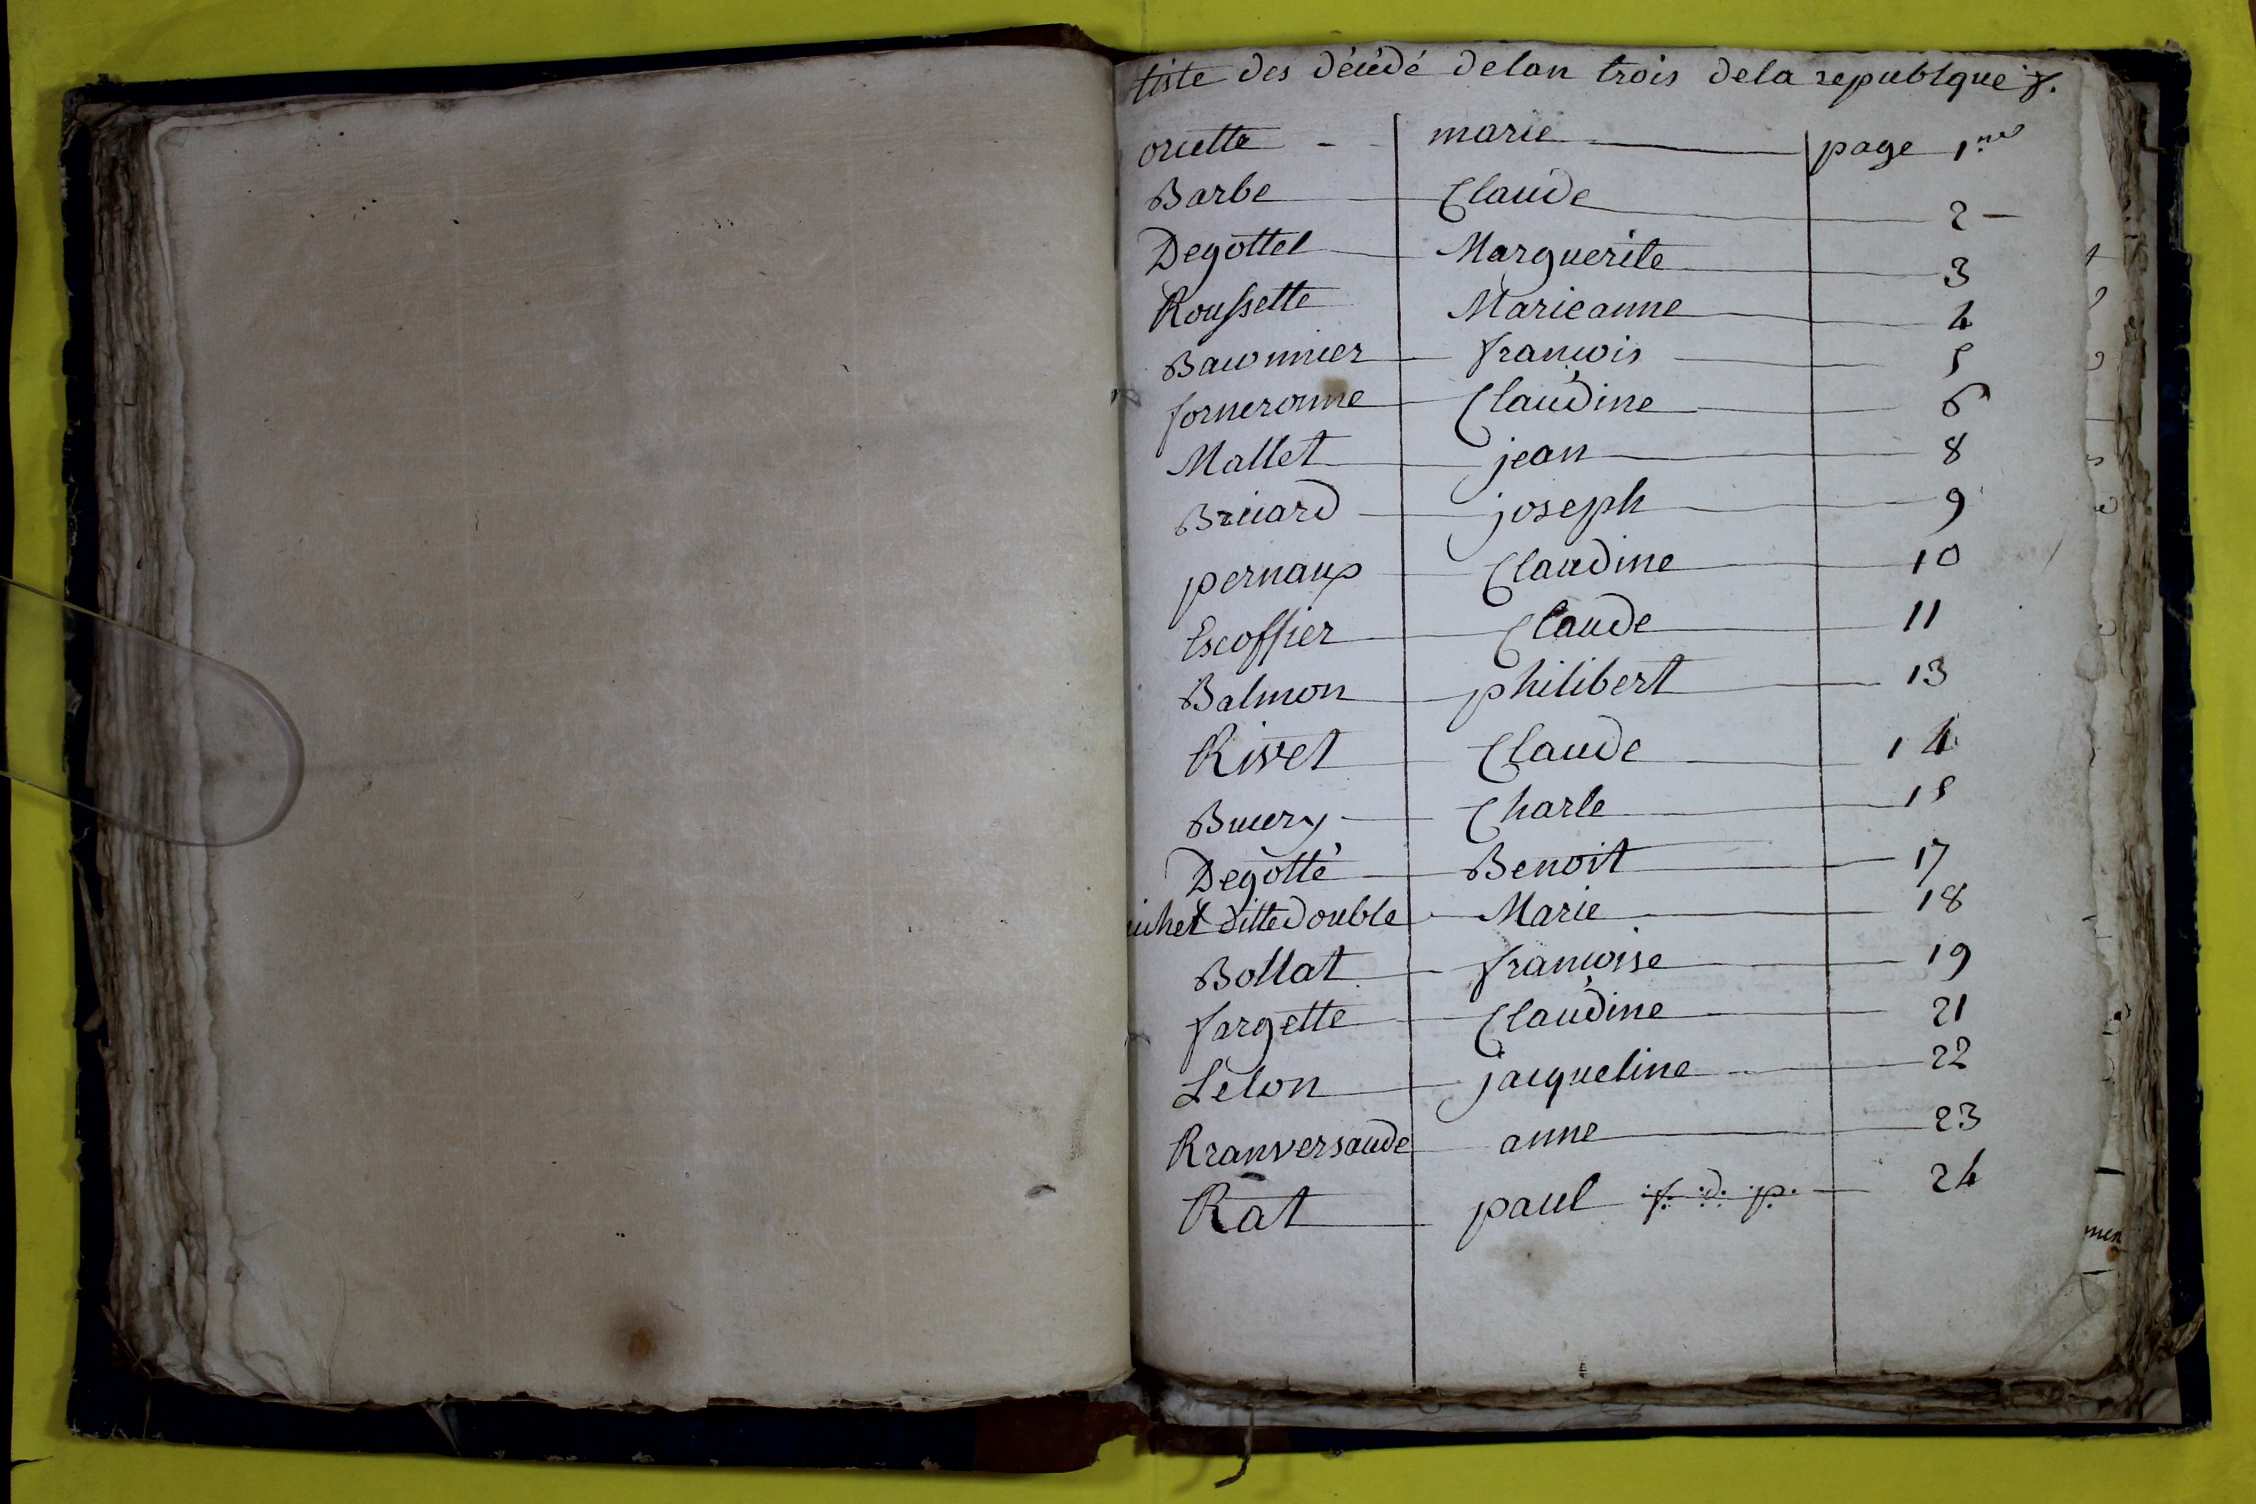 liste des décédé delan trois dela republque f.
oriette - marie page 1re
Barbe Claude 2
Degottel Marguerite 3
Roussette Marieanne 4
Bawnnier françois 5
forneronne Claudine 6
Mallet jean 8
Briiard joseph 9
pernaux Claudine 10
Escoffier Claude 11
Balmon philibert 13
Rivet Claude 14
Charle 15
Degotté Benoit 17
ditte double Marie 18
Bollat françoise 19
fargette Claudine 21
Lelon jacqueline 22
Rranversaude anne 23
Rat paul f. d. p. 24